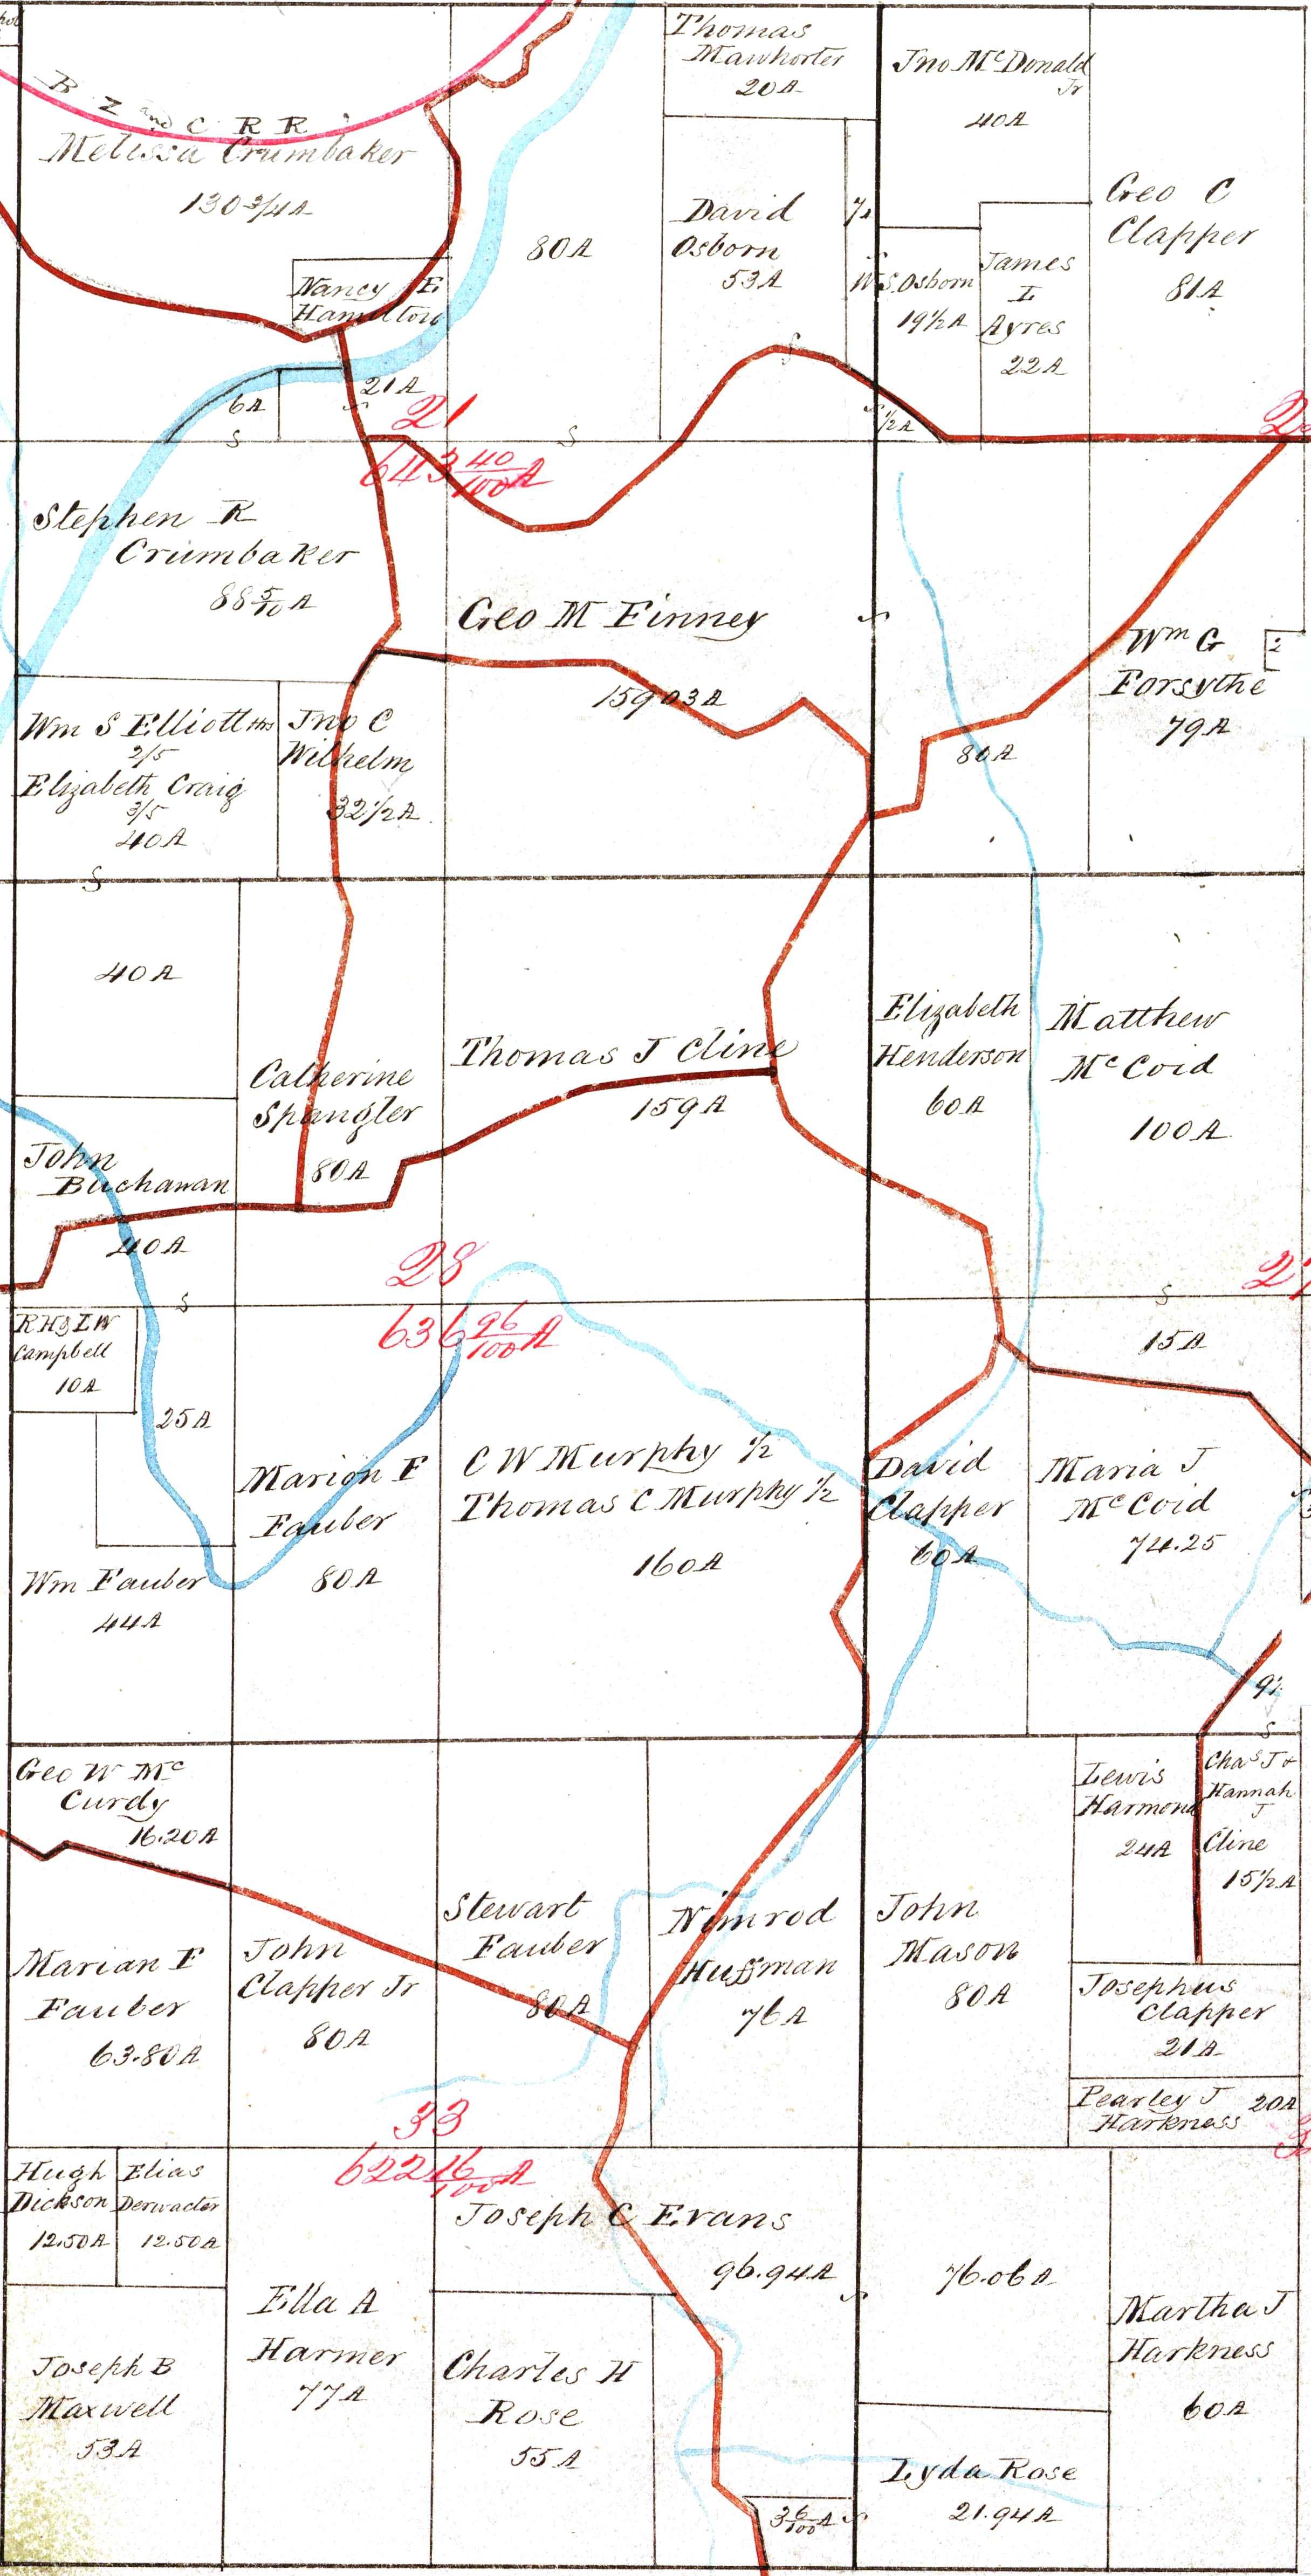 B Z and C R R
Melissa Crumbaker
130 3/4 A
Nancy E
Hamilton
21 A
6 A
80 A
Thomas
Mawhorter
20 A
David
Osborn
53 A
7 A
Jno Mc Donald
Jr
40 A
W S. Osborn
19 1/2 A
James
L
Ayres
22 A
Geo C
Clapper
81 A
1/2 A
21
643 40/100 A
Stephen R
Crumbaker
88 5/10 A
Geo M Finney
159 03 A
80 A
Wm G
Forsythe
79 A
Wm S Elliott Hrs
2/5
Elizabeth Craig
3/5
40 A
Jno C
Wilhelm
32 1/2 A
40 A
Catherine
Spangler
80 A
Thomas J Cline
159 A
Elizabeth
Henderson
60 A
Matthew
Mc Coid
100 A
John
Buchanan
40 A
28
636 96/100 A
27
R H & L W
Campbell
10 A
25 A
15 A
Marion F
Fauber
80 A
C W Murphy 1/2
Thomas C Murphy 1/2
160 A
David
Clapper
60 A
Maria J
Mc Coid
74.25
Wm Fauber
44 A
Geo W Mc
Curdy
16.20 A
Lewis
Harmond
24 A
Chas J &
Hannah
J
Cline
15 1/2 A
Marian F
Fauber
63.80 A
John
Clapper Jr
80 A
Stewart
Fauber
80 A
Nimrod
Huffman
76 A
John
Mason
80 A
Josephus
Clapper
21 A
Pearley J 20 A
Harkness
33
622 16/100 A
Hugh
Dickson
12.50 A
Elias
Derwacter
12.50 A
Joseph C Evans
96.94 A
76.06 A
Ella A
Harmer
77 A
Martha J
Harkness
60 A
Joseph B
Maxwell
53 A
Charles H
Rose
55 A
Lyda Rose
21.94 A
3 6/100 A